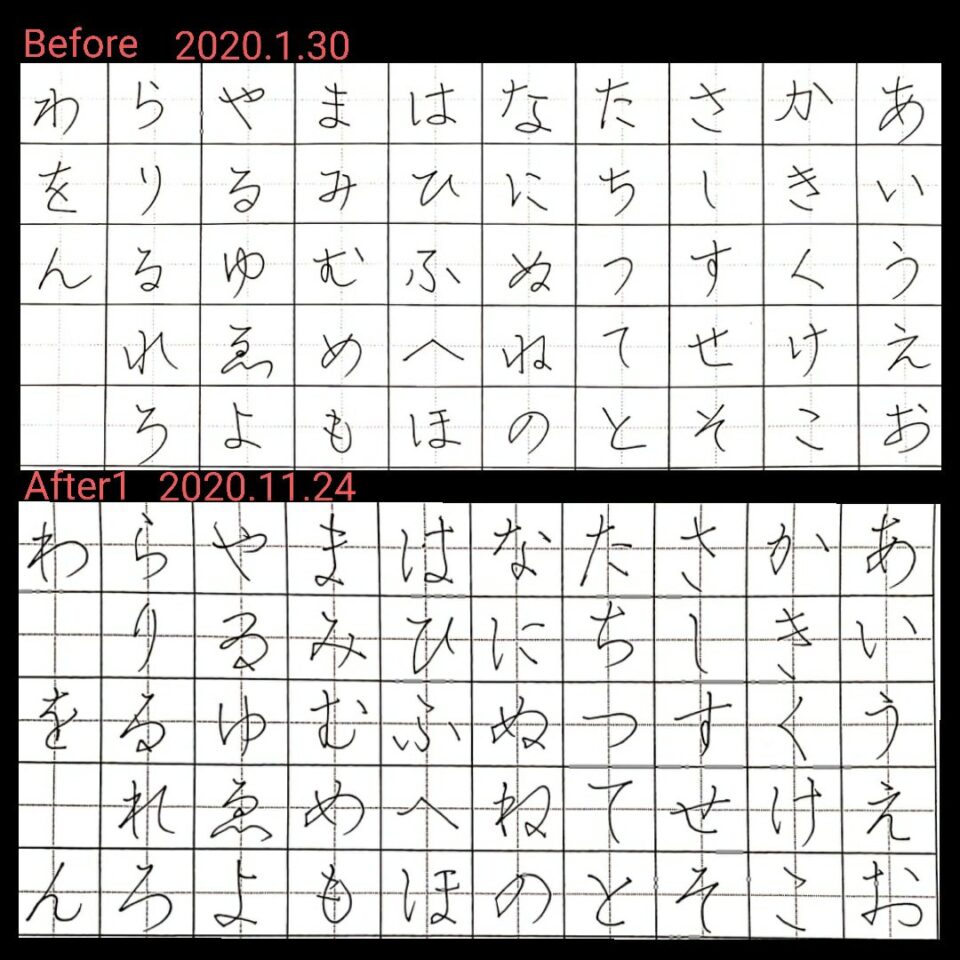 Before 2020.1.30
あいうえお
かきくけこ
さしすせそ
たちつてと
なにぬねの
はひふへほ
まみむめも
やゐゆゑよ
らりるれろ
わをん
After1 2020.11.24
あいうえお
かきくけこ
さしすせそ
たちつてと
なにぬねの
はひふへほ
まみむめも
やゐゆゑよ
らりるれろ
わをん